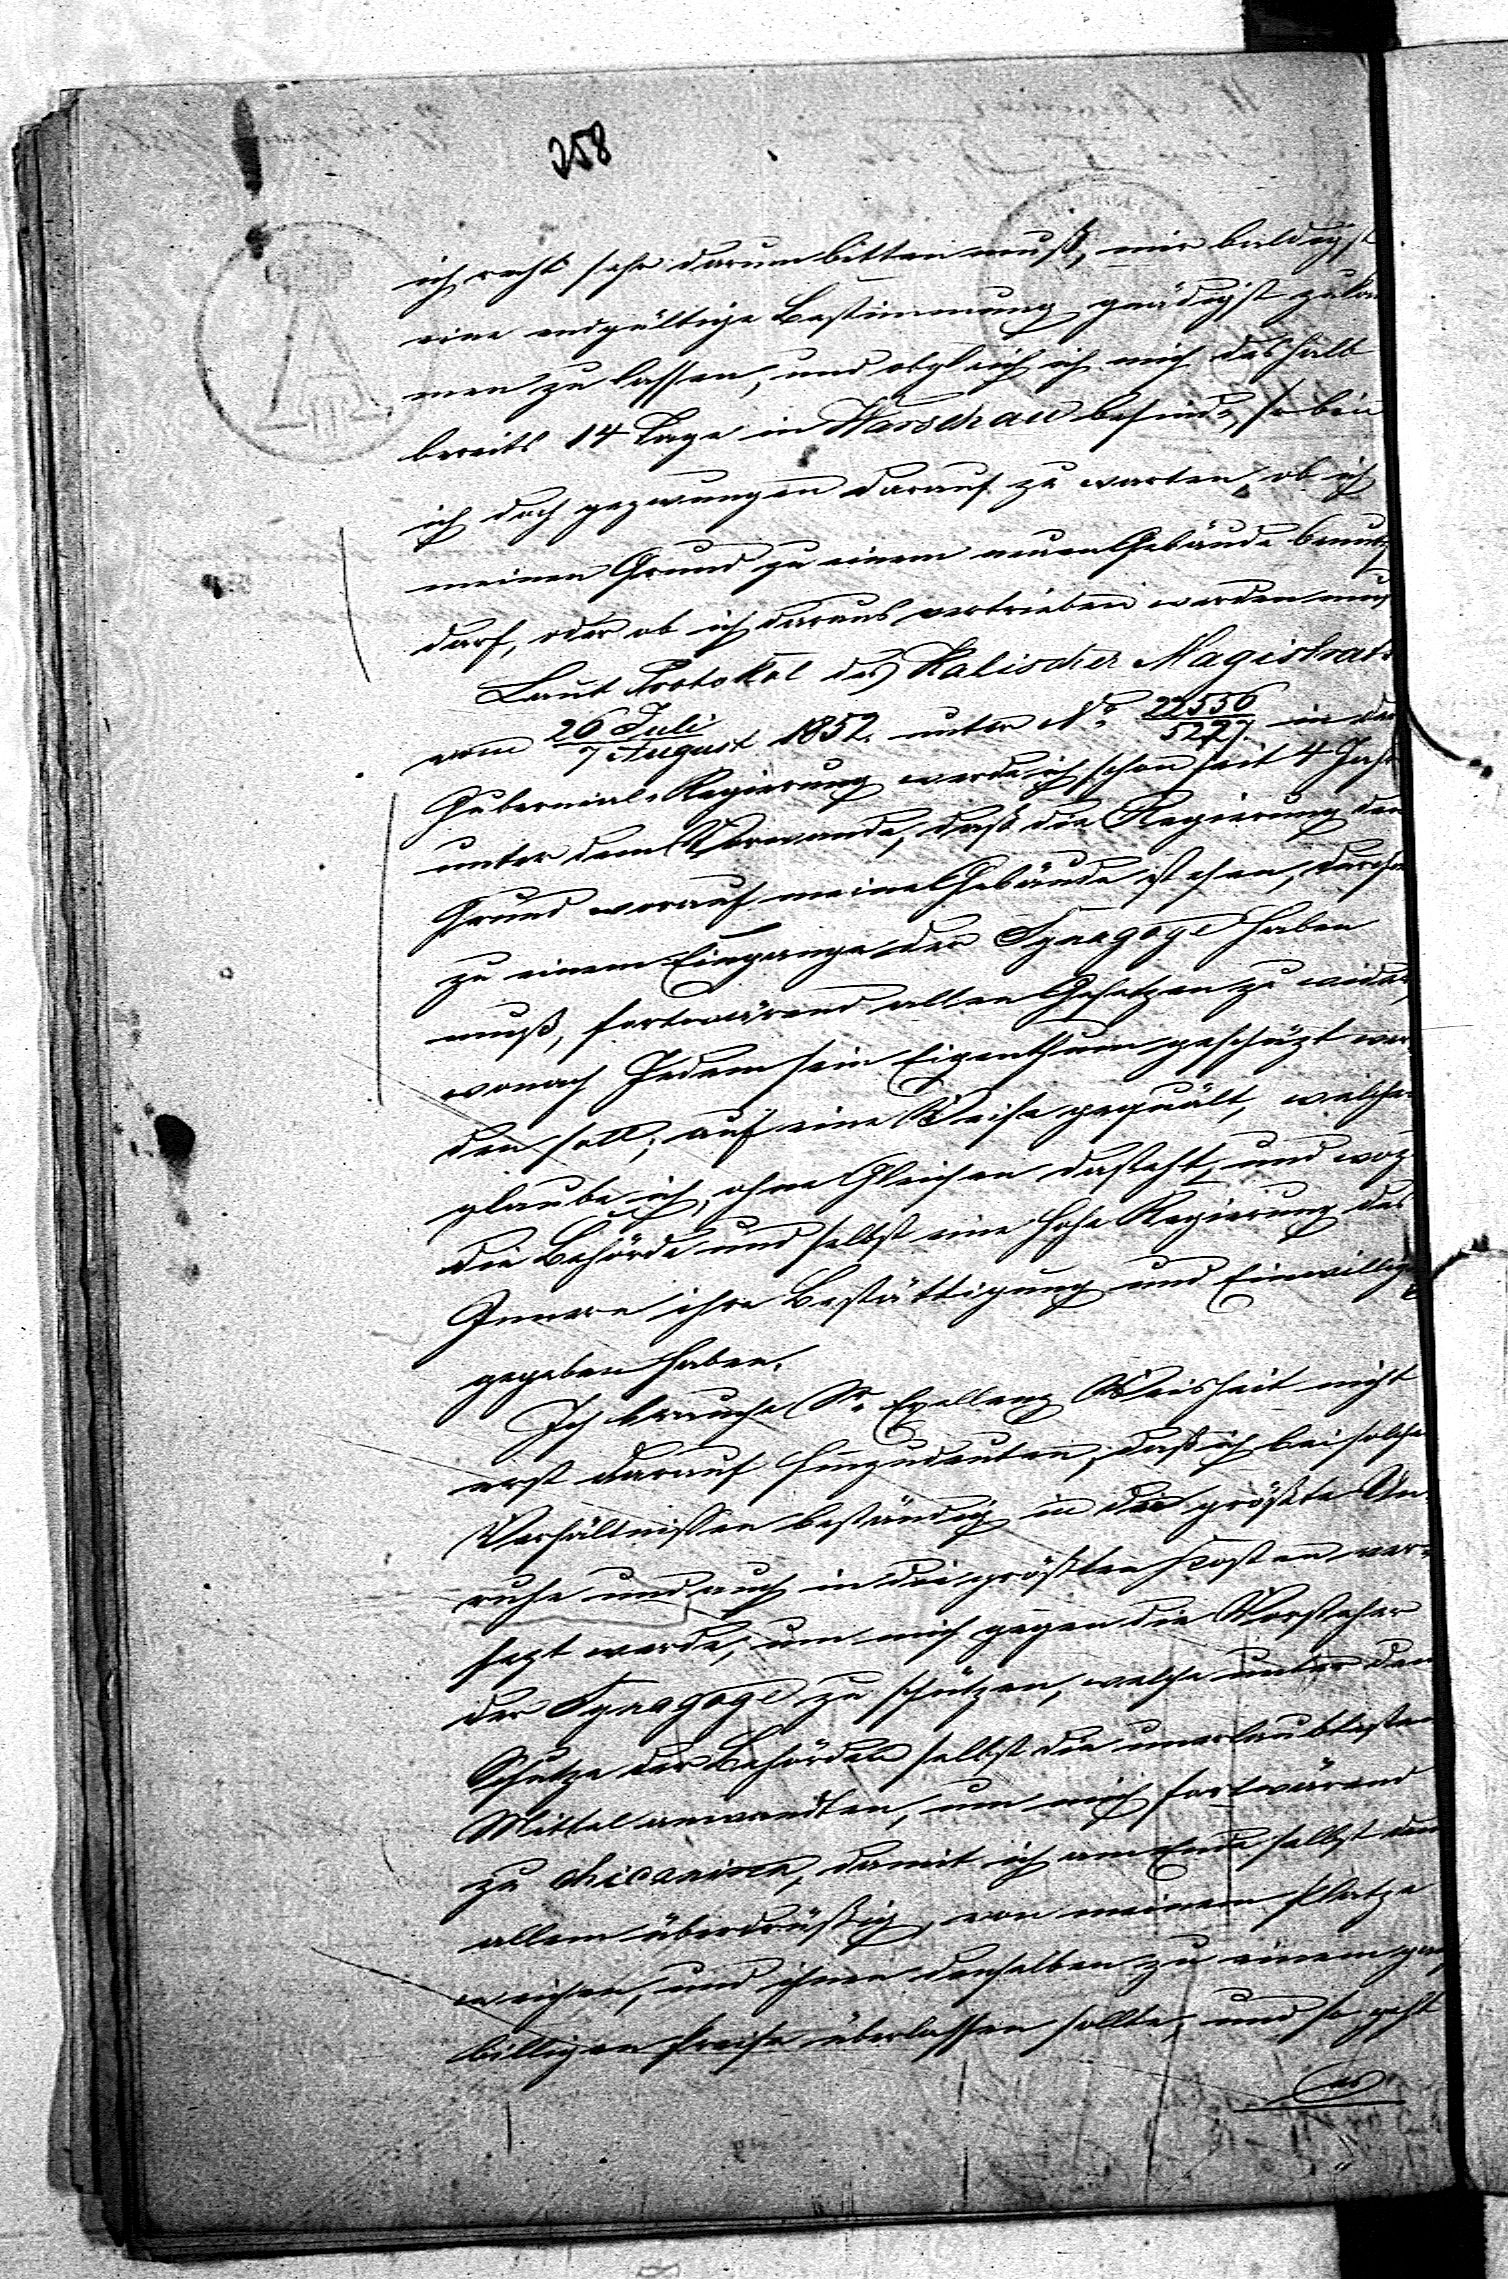 258
ich recht sehr darum bitten muß, mir baldigst
eine endgültige Bestimmung gnädigst zukom
men zu lassen, und obgleich ich mich deshalb
bereits 14 Tage in Warschau befinde, so bin
ich doch gezwungen darauf zu warten, ob ich
meinen Grund zu einem neuen Gebäude benutz
darf, oder ob ich daraus vertrieben werden muß
Laut Protokol des Kalischer Magistrats
vom 26 Juli / 7 August 1852. unter No. 22556 / 5227. in der
Gubernial-Regierung werde ich schon seit 4 Jahr
unter dem Vorwande, daß die Regierung den
Grund worauf meine Gebäude stehen, durchaus
zu einem Eingange der Synagoge haben
muß, fortwärend allen Gesetzen zu wider,
wonach Jedem sein Eigenthum geschüzt wer
den soll, auf eine Weise gequält, welche
glaube ich, ohne Gleichen dasteht, und wozu
die Behörde und selbst eine hohe Regierung des
Innern ihre Bestättigung und Einwillig
gegeben haben.
Ich brauche Sr. Exellenz Weisheit nicht
erst darauf hinzudeuten, daß ich bei solchen
Verhältnißen beständig in die größte Un-
ruhe und auch in die größten Kosten ver-
sezt werde, um mich gegen die Vorsteher
der Synagoge zu schützen, welche unter dem
Schutze der Behörden selbst die unerlaubtesten
Mittel anwandten, um mich fortwärend
zu chicaniren, damit ich am Ende selbst dem
allem überdrüßig, von meinem Platze
weichen, und ihnen denselben zu einem ganz
billigen Preise überlassen sollte, und so geht
es